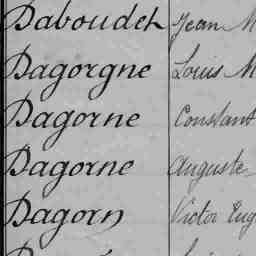 Daboudet Jean M
Dagorgne Louis M
Dagorne Constant
Dagorne Auguste
Dagorn Victor Eug